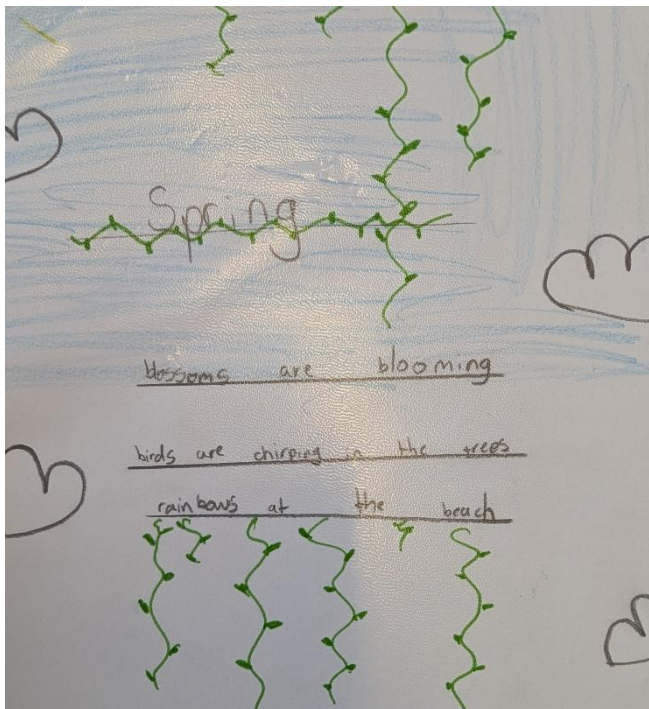 Spring
blossoms are blooming
birds are chirping in the trees
rainbows at the beach